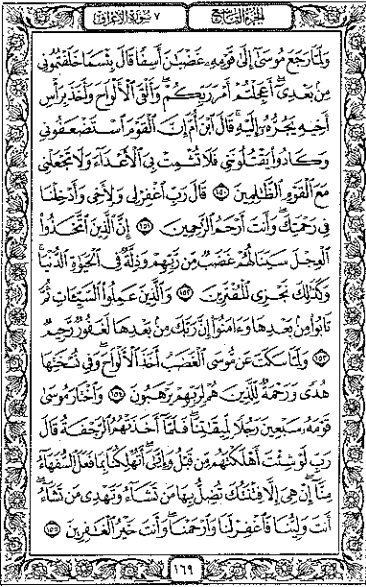 الجزء التاسع ٧ سورة الأعراف
وَلَمَّا رَجَعَ مُوسَىٰٓ إِلَىٰ قَوْمِهِۦ غَضْبَٰنَ أَسِفًا قَالَ بِئْسَمَا خَلَفْتُمُونِى
مِنۢ بَعْدِىٓ أَعَجِلْتُمْ أَمْرَ رَبِّكُمْ وَأَلْقَى ٱلْأَلْوَاحَ وَأَخَذَ بِرَأْسِ
أَخِيهِ يَجُرُّهُۥٓ إِلَيْهِ قَالَ ٱبْنَ أُمَّ إِنَّ ٱلْقَوْمَ ٱسْتَضْعَفُونِى
وَكَادُوا۟ يَقْتُلُونَنِى فَلَا تُشْمِتْ بِىَ ٱلْأَعْدَآءَ وَلَا تَجْعَلْنِى
مَعَ ٱلْقَوْمِ ٱلظَّٰلِمِينَ ١٥٠ قَالَ رَبِّ ٱغْفِرْ لِى وَلِأَخِى وَأَدْخِلْنَا
فِى رَحْمَتِكَ وَأَنتَ أَرْحَمُ ٱلرَّٰحِمِينَ ١٥١ إِنَّ ٱلَّذِينَ ٱتَّخَذُوا۟
ٱلْعِجْلَ سَيَنَالُهُمْ غَضَبٌ مِّن رَّبِّهِمْ وَذِلَّةٌ فِى ٱلْحَيَوٰةِ ٱلدُّنْيَا
وَكَذَٰلِكَ نَجْزِى ٱلْمُفْتَرِينَ ١٥٢ وَٱلَّذِينَ عَمِلُوا۟ ٱلسَّيِّـَٔاتِ ثُمَّ
تَابُوا۟ مِنۢ بَعْدِهَا وَءَامَنُوٓا۟ إِنَّ رَبَّكَ مِنۢ بَعْدِهَا لَغَفُورٌ رَّحِيمٌ
١٥٣ وَلَمَّا سَكَتَ عَن مُّوسَى ٱلْغَضَبُ أَخَذَ ٱلْأَلْوَاحَ وَفِى نُسْخَتِهَا
هُدًى وَرَحْمَةٌ لِّلَّذِينَ هُمْ لِرَبِّهِمْ يَرْهَبُونَ ١٥٤ وَٱخْتَارَ مُوسَىٰ
قَوْمَهُۥ سَبْعِينَ رَجُلًا لِّمِيقَٰتِنَا فَلَمَّآ أَخَذَتْهُمُ ٱلرَّجْفَةُ قَالَ
رَبِّ لَوْ شِئْتَ أَهْلَكْتَهُم مِّن قَبْلُ وَإِيَّٰىَ أَتُهْلِكُنَا بِمَا فَعَلَ ٱلسُّفَهَآءُ
مِنَّآ إِنْ هِىَ إِلَّا فِتْنَتُكَ تُضِلُّ بِهَا مَن تَشَآءُ وَتَهْدِى مَن تَشَآءُ
أَنتَ وَلِيُّنَا فَٱغْفِرْ لَنَا وَٱرْحَمْنَا وَأَنتَ خَيْرُ ٱلْغَٰفِرِينَ ١٥٥
١٦٩